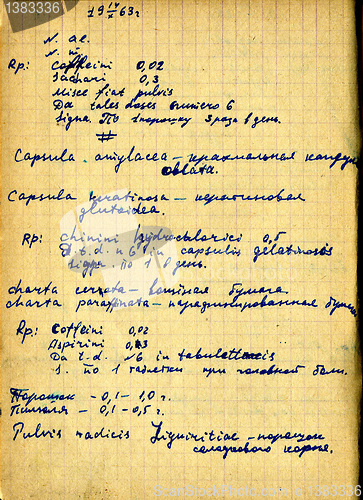 19 IV/X 63 г
N. ae.
N. m.
Rp: Coffeini 0,02
Sachari 0,3
Misce fiat pulvis
Da tales doses numero 6
Signa. По 1 порошку 3 раза в день.
#
Capsula amylacea – крахмальная капсула
oblata.
Capsula keratinosa – кератиновая
glutoidea.
Rp: Chinini hydrochlorici 0,5
D.t.d. N 6 in capsulis gelatinosis
Signa. По 1 в день.
charta cerata – вощеная бумага
charta paraffinata – парафинированная бумага
Rp: Coffeini 0,02
Aspirini 0,3
Da t.d. N6 in tabulettis
S. по 1 таблетки при головной боли.
Порошок – 0,1 – 1,0 г.
Пилюля – 0,1 – 0,5 г.
Pulvis radicis Liquiritiae – порошок
солодкового корня.